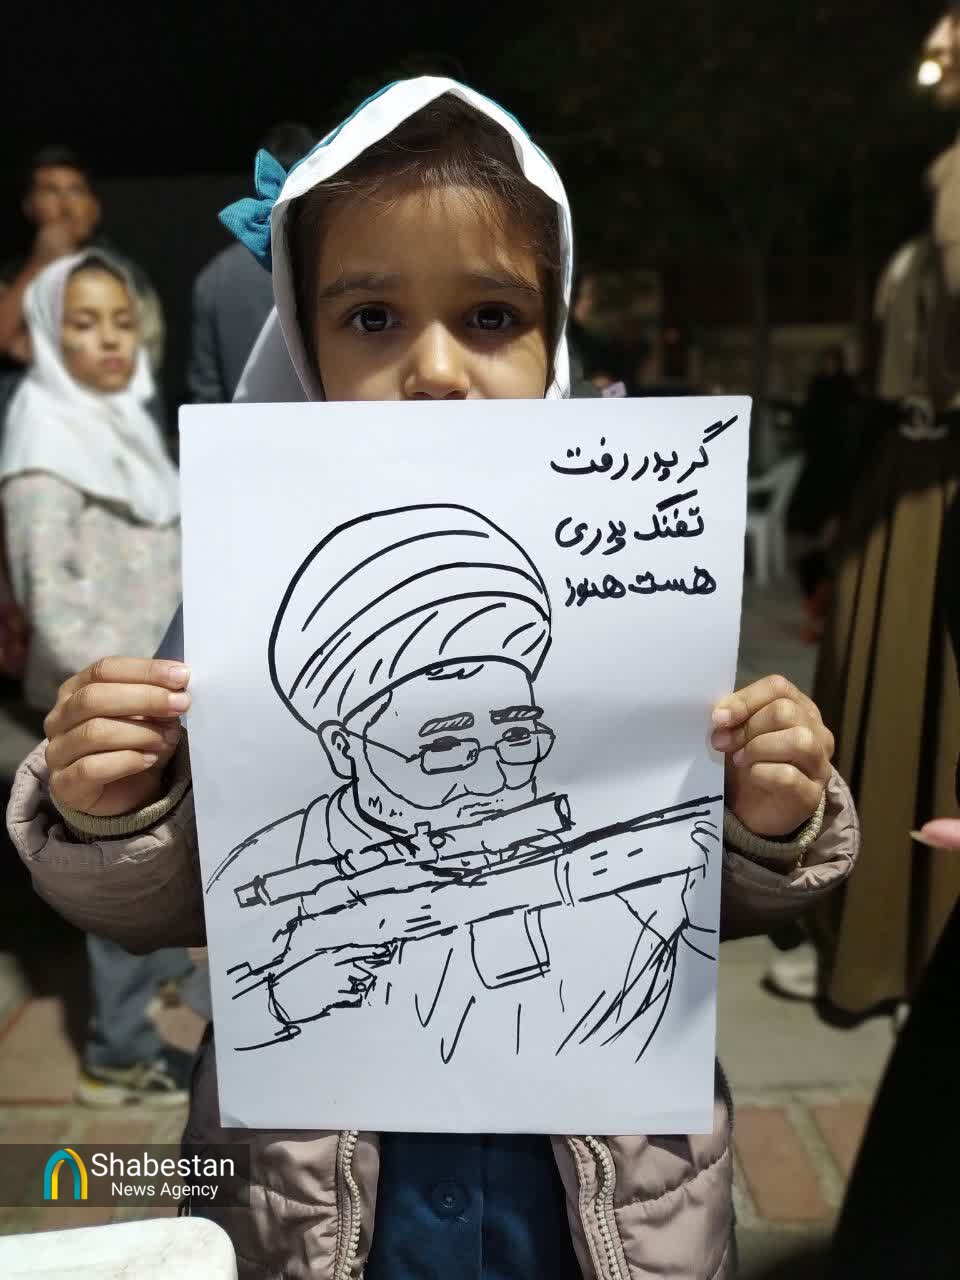 گر پدر رفت
تفنگ پدری
هست هنوز
Shabestan
News Agency